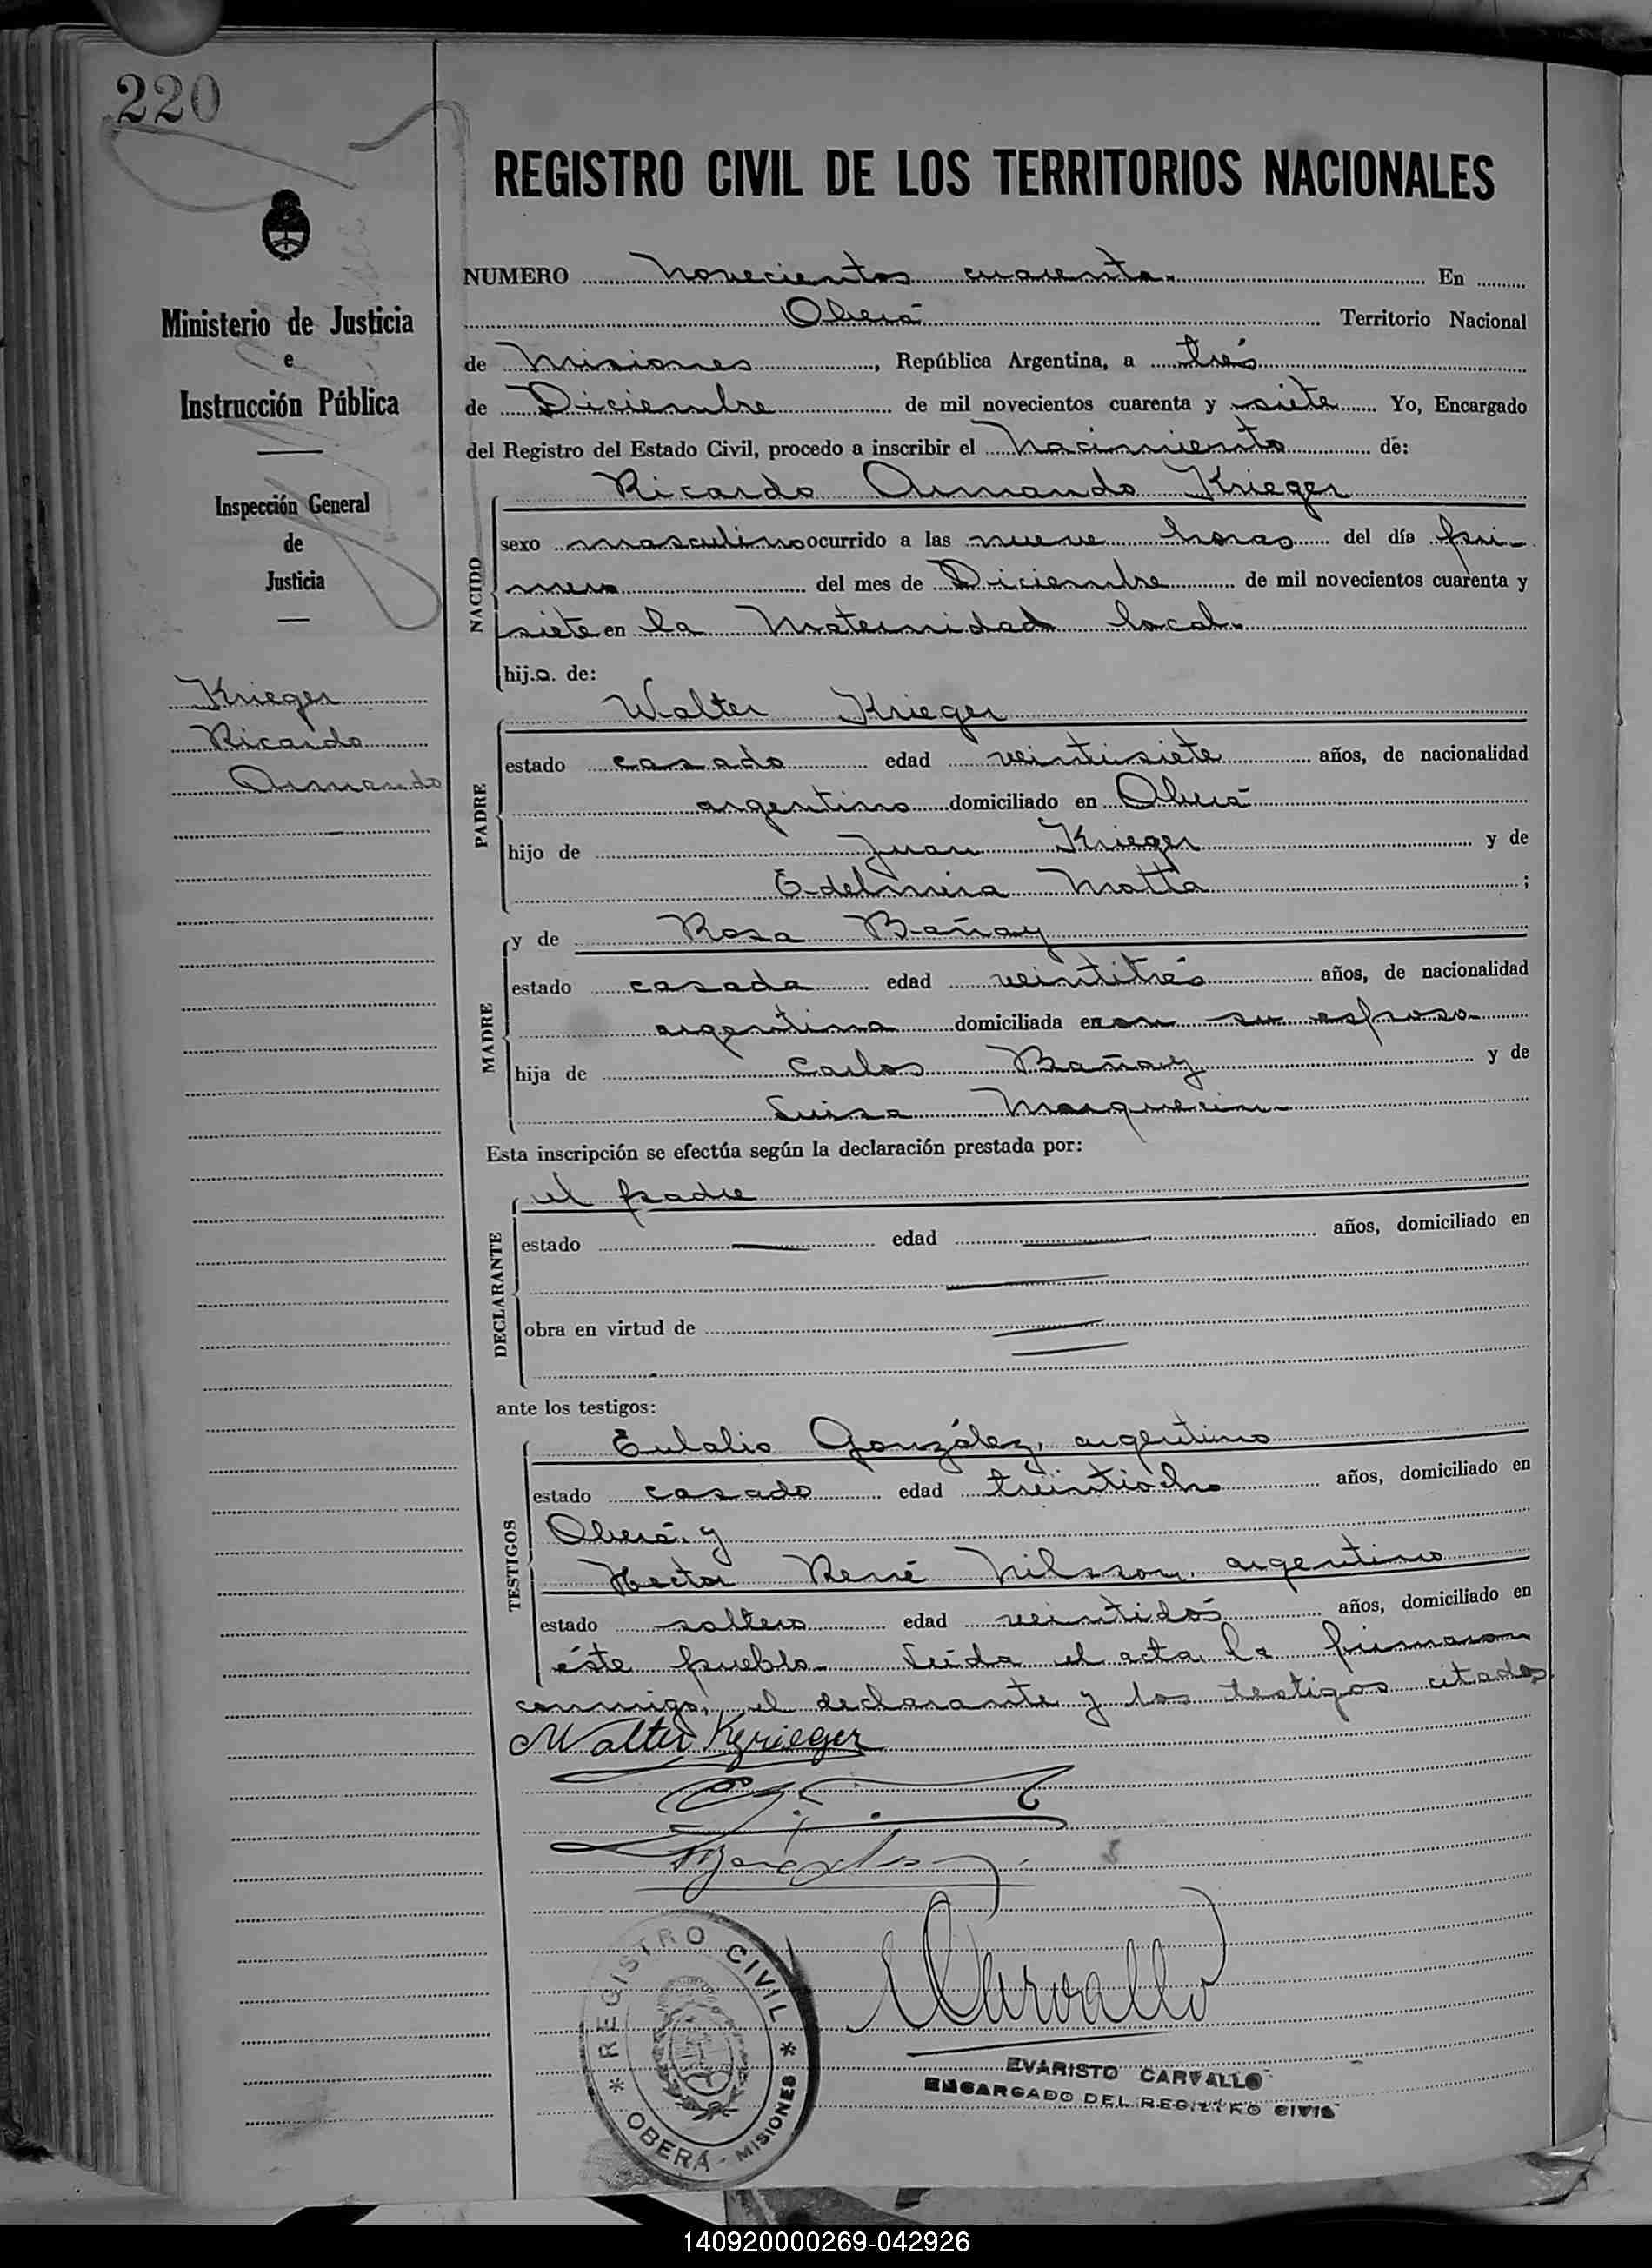 220
REGISTRO CIVIL DE LOS TERRITORIOS NACIONALES
Ministerio de Justicia
e
Instrucción Pública
Inspección General
de
Justicia
Krieger
Ricardo
Armando
NUMERO novecientos cuarenta. En
Oberá Territorio Nacional
de Misiones, República Argentina, a trés
de Diciembre de mil novecientos cuarenta y siete Yo, Encargado
del Registro del Estado Civil, procedo a inscribir el Nacimiento de:
NACIDO
Ricardo Armando Krieger
sexo masculino ocurrido a las nueve horas del día pri-
mero del mes de Diciembre de mil novecientos cuarenta y
siete en la Maternidad local.
hijo de:
PADRE
Walter Krieger
estado casado edad veintisiete años, de nacionalidad
argentino domiciliado en Oberá
hijo de Juan Krieger y de
Edelmira Motta;
MADRE
y de Rosa Bañay
estado casada edad veintitrés años, de nacionalidad
argentina domiciliada con su esposo.
hija de Carlos Bañay y de
Luisa
Esta inscripción se efectúa según la declaración prestada por:
DECLARANTE
el padre
estado edad años, domiciliado en
obra en virtud de
ante los testigos:
TESTIGOS
Eulalio González, argentino
estado casado edad treintiocho años, domiciliado en
Oberá, y
Hector René Nilsson, argentino
estado soltero edad veintidós años, domiciliado en
éste pueblo. Leída el acta, la firmaron
conmigo, el declarante y los testigos citados
Walter Krieger
Carvallo
REGISTRO CIVIL
OBERÁ - MISIONES
EVARISTO CARVALLO
ENCARGADO DEL REGISTRO CIVIL
140920000269-042926